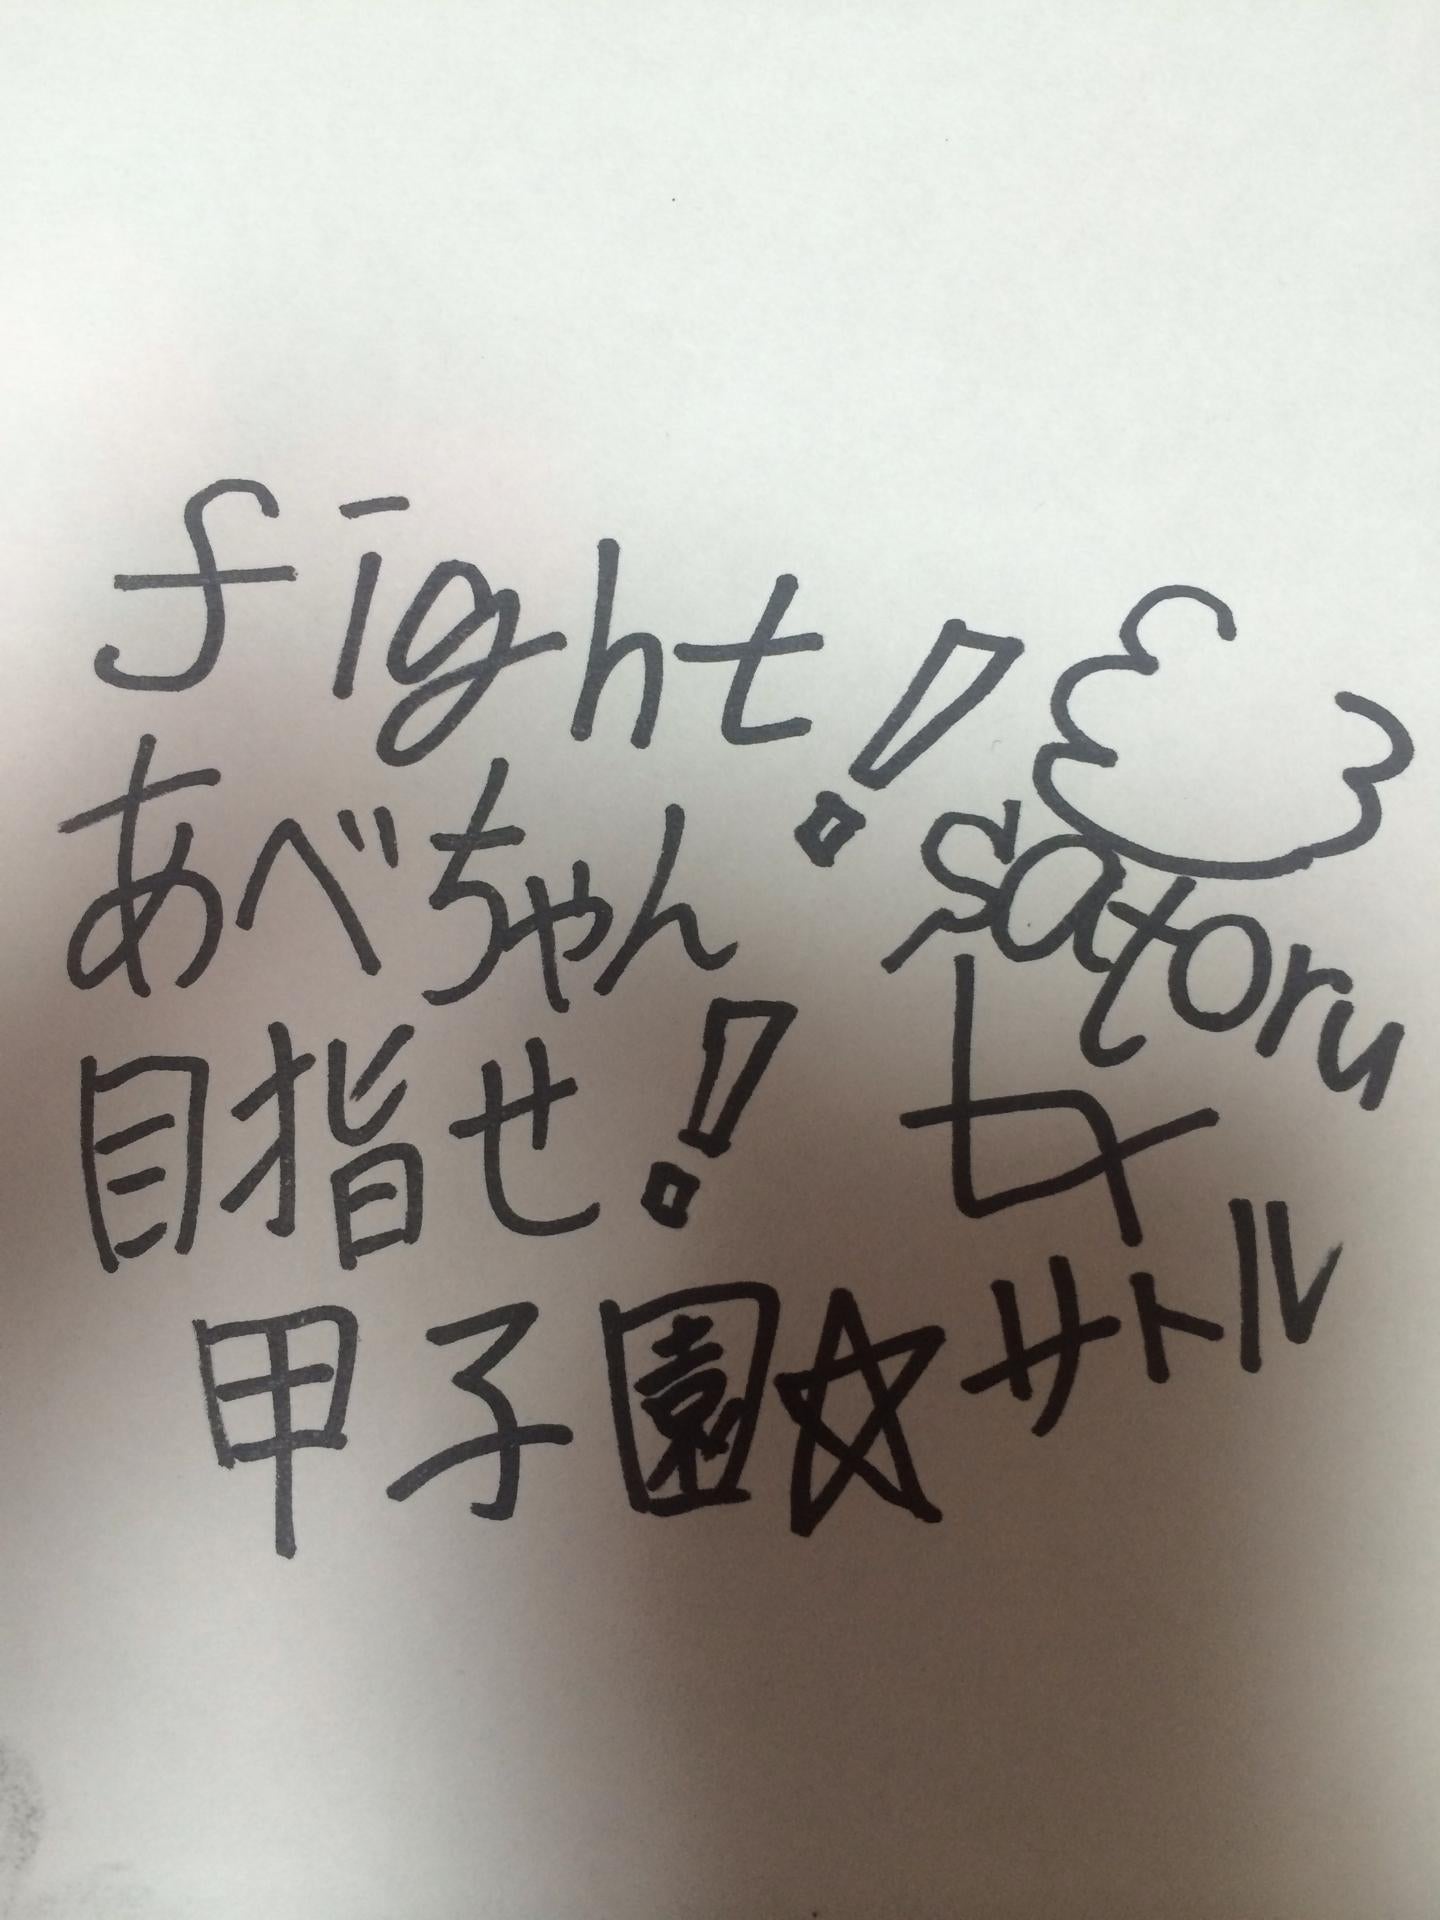 fight!
あべちゃん
目指せ!
甲子園☆
satoru
サトル